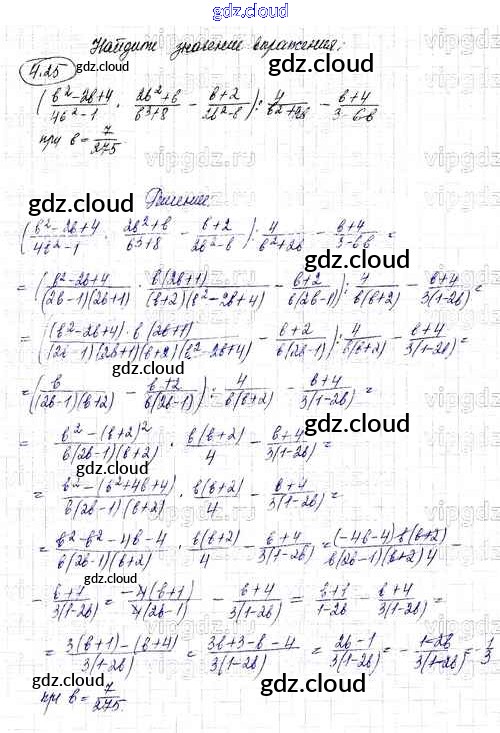 gdz.cloud
Найдите значение выражения:
4.25
(b²-2b+4/4b²-1 · 2b²+b/b³+8 - b+2/2b²-b) : 4/b²+2b - b+4/3-6b
при b = 7/275
Решение:
(b²-2b+4/4b²-1 · 2b²+b/b³+8 - b+2/2b²-b) : 4/b²+2b - b+4/3-6b =
= (b²-2b+4/(2b-1)(2b+1) · b(2b+1)/(b+2)(b²-2b+4) - b+2/b(2b-1)) : 4/b(b+2) - b+4/3(1-2b) =
= ((b²-2b+4)·b(2b+1)/(2b-1)(2b+1)(b+2)(b²-2b+4) - b+2/b(2b-1)) : 4/b(b+2) - b+4/3(1-2b) =
= (b/(2b-1)(b+2) - b+2/b(2b-1)) : 4/b(b+2) - b+4/3(1-2b) =
= b²-(b+2)²/b(2b-1)(b+2) · b(b+2)/4 - b+4/3(1-2b) =
= b²-(b²+4b+4)/b(2b-1)(b+2) · b(b+2)/4 - b+4/3(1-2b) =
= b²-b²-4b-4/b(2b-1)(b+2) · b(b+2)/4 - b+4/3(1-2b) = (-4b-4)b(b+2)/b(2b-1)(b+2)4 -
- b+4/3(1-2b) = -4(b+1)/4(2b-1) - b+4/3(1-2b) = b+1/1-2b - b+4/3(1-2b) =
= 3(b+1)-(b+4)/3(1-2b) = 3b+3-b-4/3(1-2b) = 2b-1/3(1-2b) = - 1-2b/3(1-2b) = -1/3
при b = 7/275.
gdz.cloud